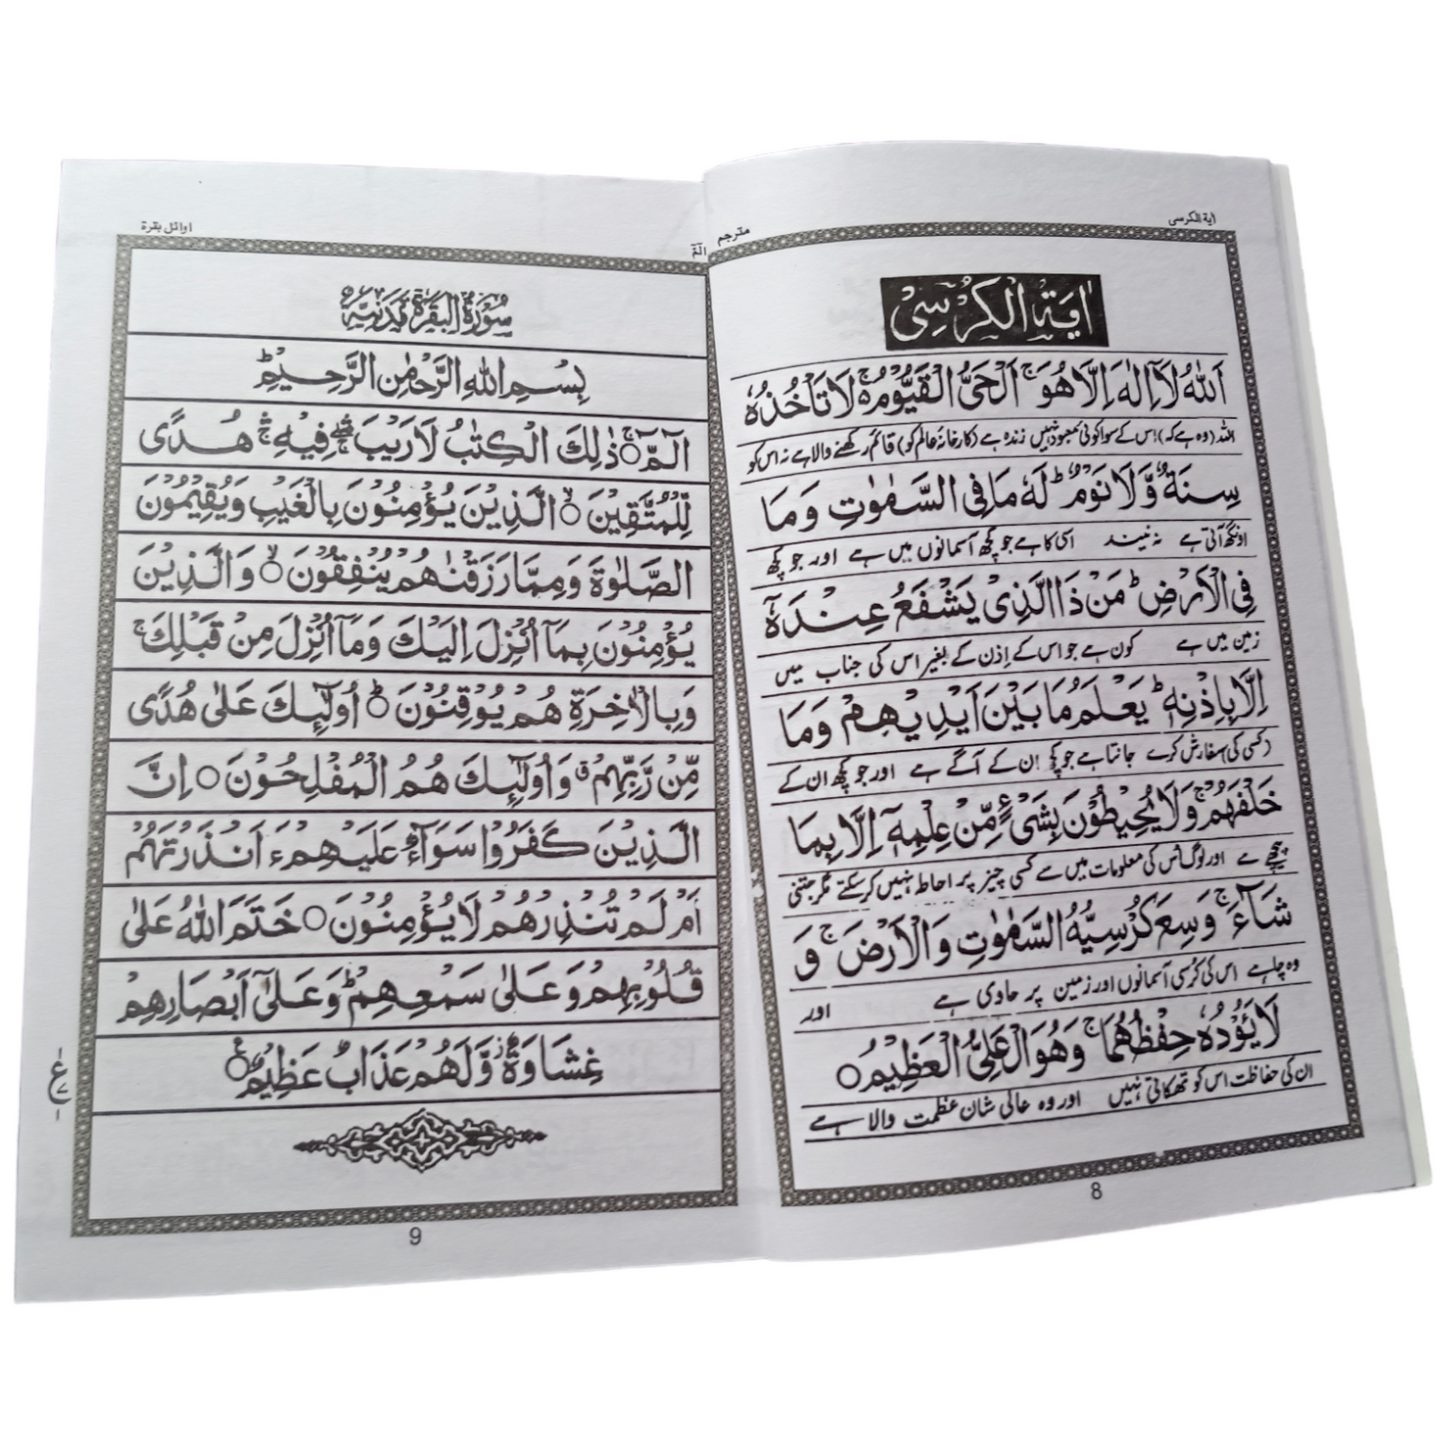 آية الكرسى
مترجم
اٰيَةُ الْكُرْسِىْ
اَللّٰهُ لَآ اِلٰهَ اِلَّا هُوَ ۚ اَلْحَىُّ الْقَيُّوْمُ ۚ لَا تَاْخُذُهٗ
اللہ (وہ ہے کہ) اس کے سوا کوئی معبود نہیں زندہ ہے (کارخانۂ عالم کو) قائم رکھنے والا ہے نہ اس کو
سِنَةٌ وَّلَا نَوْمٌ ؕ لَهٗ مَا فِى السَّمٰوٰتِ وَمَا
اونگھ آتی ہے نہ نیند اسی کا ہے جو کچھ آسمانوں میں ہے اور جو کچھ
فِى الْاَرْضِ ؕ مَنْ ذَا الَّذِىْ يَشْفَعُ عِنْدَهٗٓ
زمین میں ہے کون ہے جو اس کے اِذن کے بغیر اس کی جناب میں
اِلَّا بِاِذْنِهٖ ؕ يَعْلَمُ مَا بَيْنَ اَيْدِيْهِمْ وَمَا
(کسی کی) سفارش کرے جانتا ہے جو کچھ اِن کے آگے ہے اور جو کچھ ان کے
خَلْفَهُمْ ۚ وَلَا يُحِيْطُوْنَ بِشَىْءٍ مِّنْ عِلْمِهٖٓ اِلَّا بِمَا
پیچھے ہے اور لوگ اُس کی معلومات میں سے کسی چیز پر احاطہ نہیں کر سکتے مگر جتنی
شَآءَ ۚ وَسِعَ كُرْسِيُّهُ السَّمٰوٰتِ وَالْاَرْضَ ۚ وَ
وہ چاہے اس کی کُرسی آسمانوں اور زمین پر حاوی ہے اور
لَا يَـُٔوْدُهٗ حِفْظُهُمَا ۚ وَهُوَ الْعَلِىُّ الْعَظِيْمُ ○
ان کی حفاظت اس کو تھکاتی نہیں اور وہ عالی شان عظمت والا ہے
8
الٓمّٓ
اوائل بقرة
سُوْرَةُ الْبَقَرَةِ مَدَنِيَّةٌ
بِسْمِ اللّٰهِ الرَّحْمٰنِ الرَّحِيْمِ ؕ
الٓمّٓ ○ ۚ ذٰلِكَ الْكِتٰبُ لَا رَيْبَ ۛ فِيْهِ ۛ هُدًى
لِّلْمُتَّقِيْنَ ○ ۙ الَّذِيْنَ يُؤْمِنُوْنَ بِالْغَيْبِ وَيُقِيْمُوْنَ
الصَّلٰوةَ وَمِمَّا رَزَقْنٰهُمْ يُنْفِقُوْنَ ○ ۙ وَالَّذِيْنَ
يُؤْمِنُوْنَ بِمَآ اُنْزِلَ اِلَيْكَ وَمَآ اُنْزِلَ مِنْ قَبْلِكَ ۚ
وَبِالْاٰخِرَةِ هُمْ يُوْقِنُوْنَ ○ ؕ اُولٰٓئِكَ عَلٰى هُدًى
مِّنْ رَّبِّهِمْ ۗ وَاُولٰٓئِكَ هُمُ الْمُفْلِحُوْنَ ○ اِنَّ
الَّذِيْنَ كَفَرُوْا سَوَآءٌ عَلَيْهِمْ ءَاَنْذَرْتَهُمْ
اَمْ لَمْ تُنْذِرْهُمْ لَا يُؤْمِنُوْنَ ○ خَتَمَ اللّٰهُ عَلٰى
قُلُوْبِهِمْ وَعَلٰى سَمْعِهِمْ ؕ وَعَلٰٓى اَبْصَارِهِمْ
غِشَاوَةٌ ۡ وَّلَهُمْ عَذَابٌ عَظِيْمٌ ○ ع
9